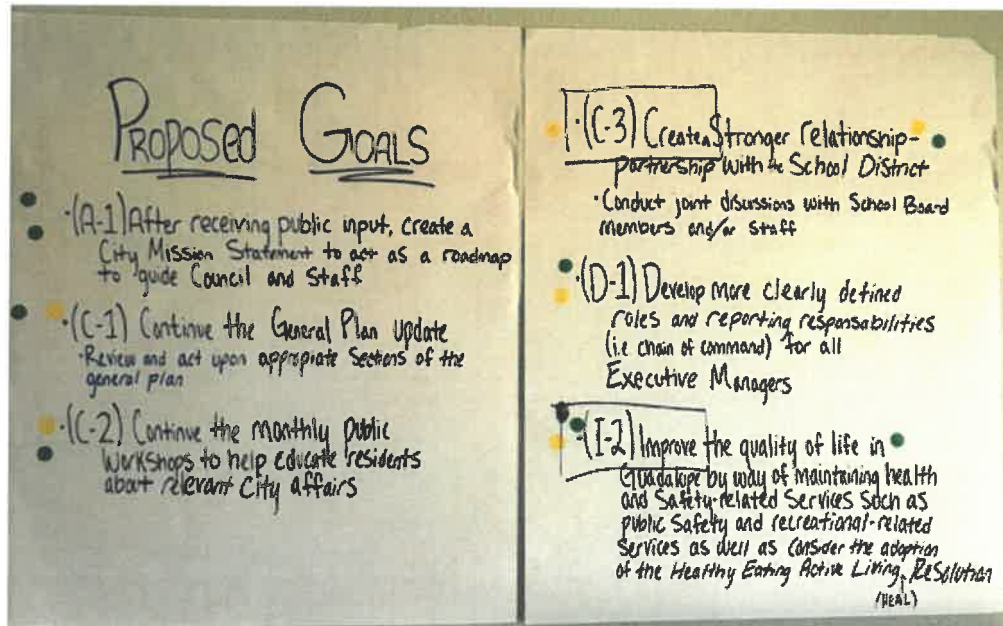 PROPOSED GOALS
·(A-1) After receiving public input, create a
City Mission Statement to act as a roadmap
to guide Council and Staff
·(C-1) Continue the General Plan Update
·Review and act upon appropiate Sections of the
general plan
·(C-2) Continue the monthly public
Workshops to help educate residents
about relevant City affairs
·(C-3) Create a Stronger relationship-
partnership with the School District
·Conduct joint discussions with School Board
members and/or Staff
·(D-1) Develop more clearly defined
roles and reporting responsabilities
(i.e chain of command) for all
Executive Managers
·(I-2) Improve the quality of life in
Guadalupe by way of maintaining health
and Safety-related Services such as
public Safety and recreational-related
Services as well as consider the adoption
of the Healthy Eating Active Living Resolution
(HEAL)